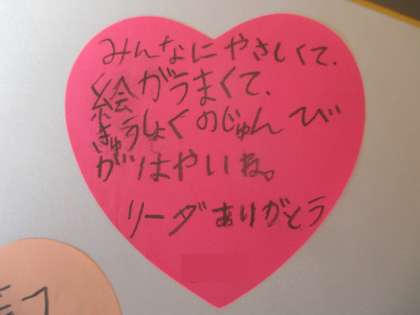 みんなにやさしくて、
絵がうまくて、
きゅうしょくのじゅんび
がはやいね。
リーダありがとう